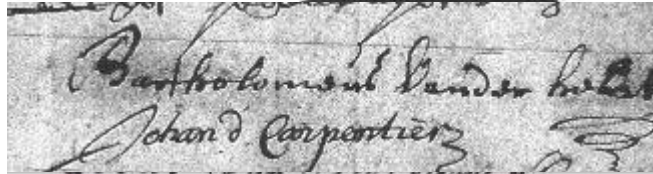 Bartholomeus Vander helst
Johan d Carpentier